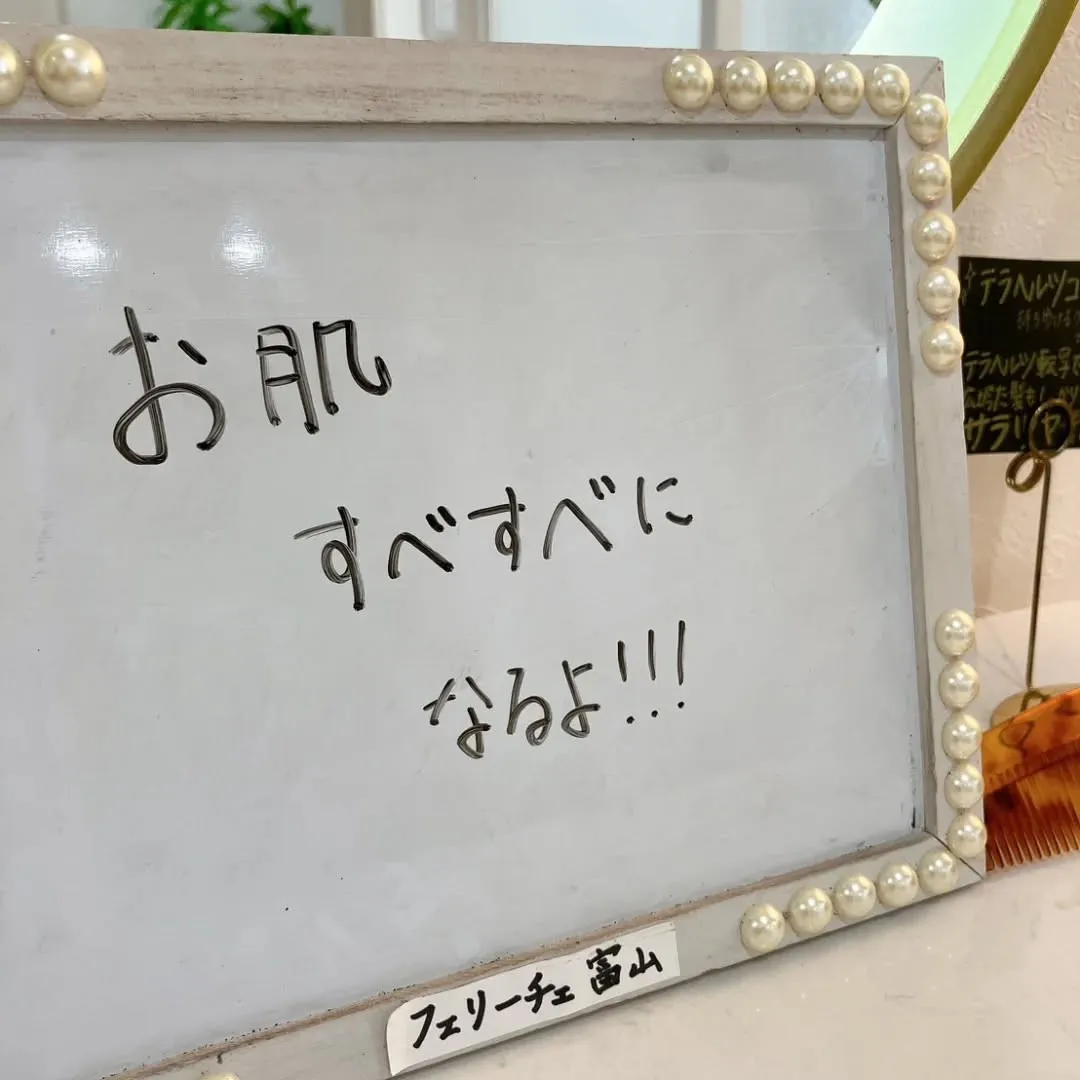 お肌
すべすべに
なるよ!!!
フェリーチェ 富山
テラヘルツコ
テラヘルツ
サラ